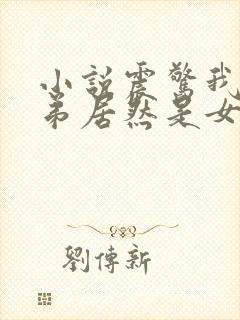 小說震驚我
弟居然是女
劉傳新